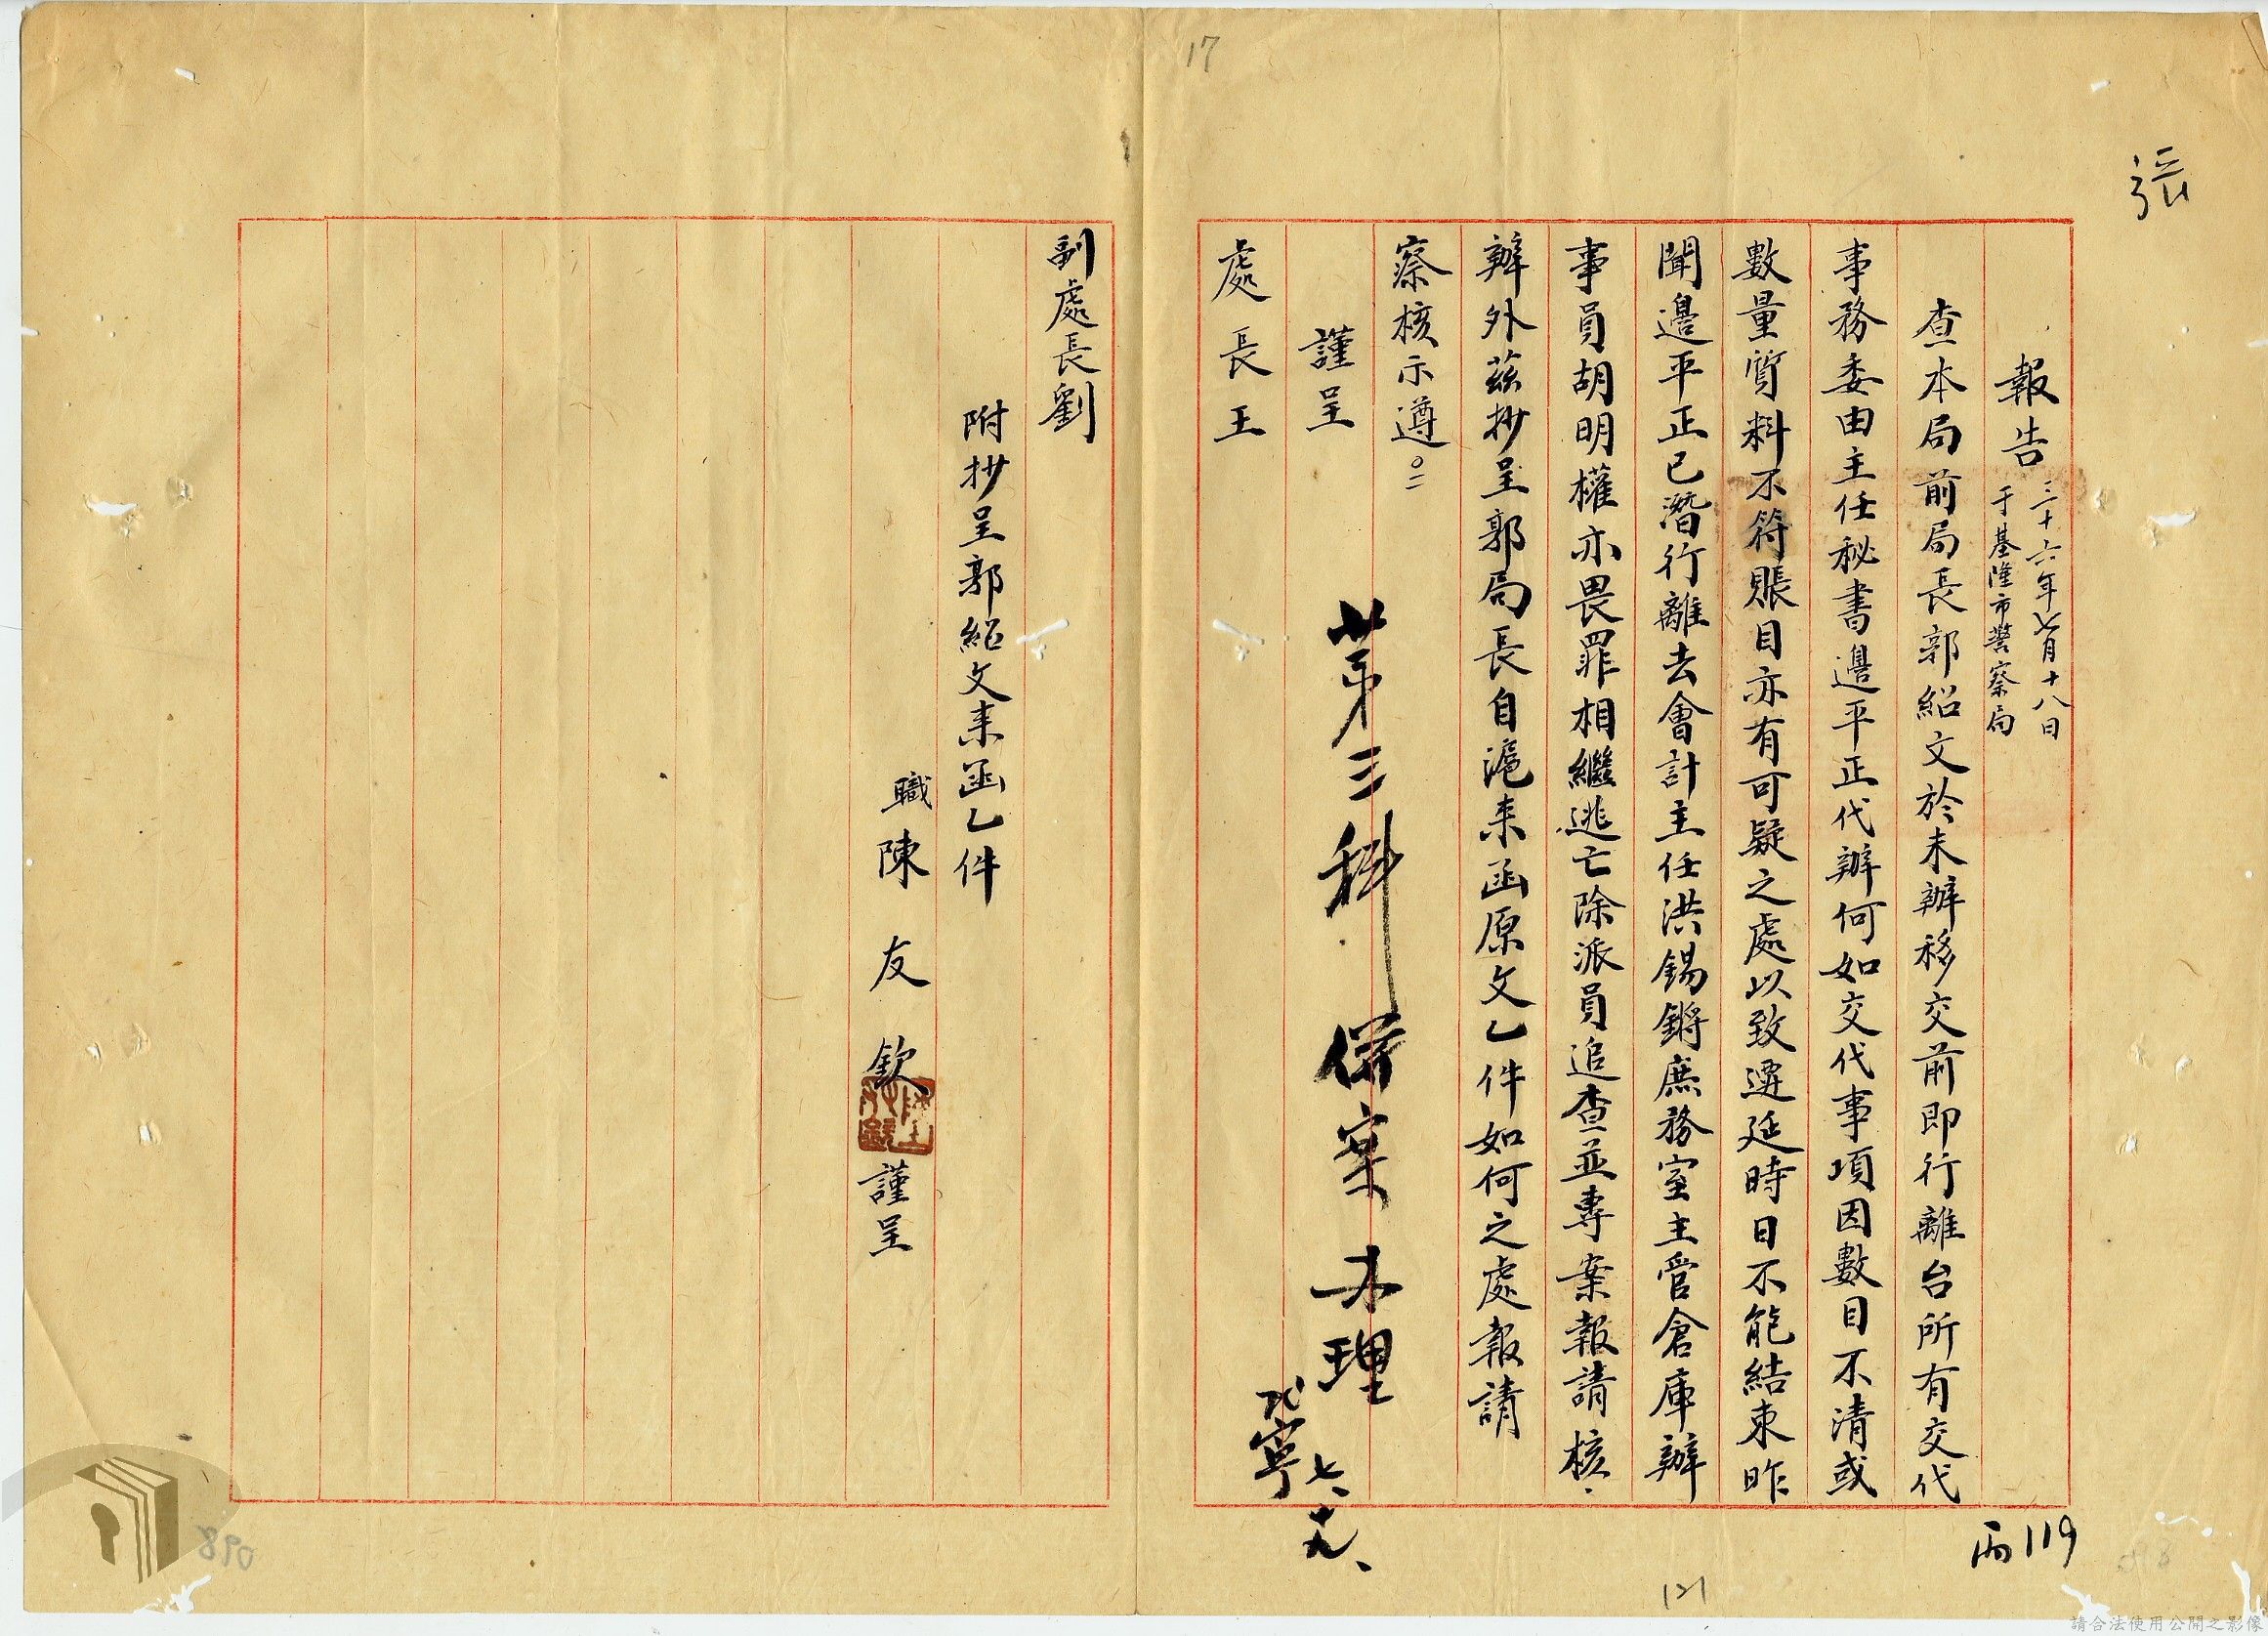 17
張
報告
三十六年七月十八日
于基隆市警察局
查本局前局長郭紹文於未辦移交前即行離台所有交代
事務委由主任秘書邊平正代辦何如交代事項因數目不清或
數量質料不符賬目亦有可疑之處以致遷延時日不能結束昨
聞邊平正已潛行離去會計主任洪錫鏘庶務室主管倉庫辦
事員胡明權亦畏罪相繼逃亡除派員追查並專案報請核
辦外茲抄呈郭局長自滬来函原文乙件如何之處報請
察核示遵。二
謹呈
處長王
第三科 併案办理
七、十九、
副處長劉
附抄呈郭紹文来函乙件
職陳友欽謹呈
丙119
121
098
請合法使用公開之影像